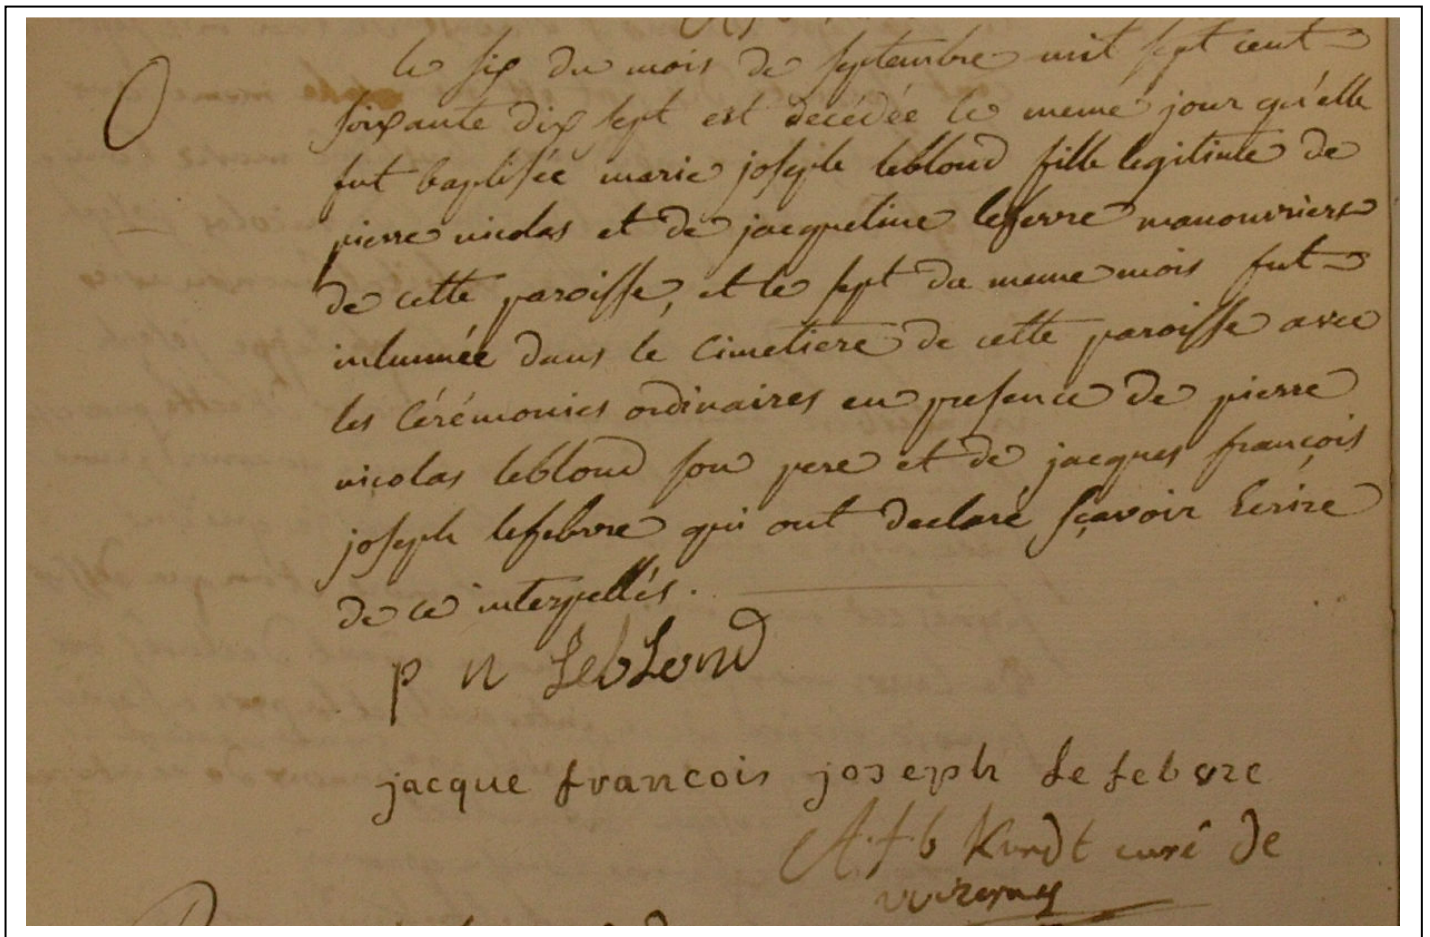 O
le six du mois de septembre mil sept cent
soixante dix sept est décédée le meme jour qu'elle
fut baptisée marie joseph leblond fille legitime de
pierre nicolas et de jacqueline lefevre manouvriers
de cette paroisse, et le sept du meme mois fut
inhumée dans le cimetiere de cette paroisse avec
les cérémonies ordinaires en presence de pierre
nicolas leblond son pere et de jacques françois
joseph lefebvre qui ont declaré sçavoir Ecrire
de ce interpellés.
p n LebLond
jacque francois joseph Lefebvre
curé de